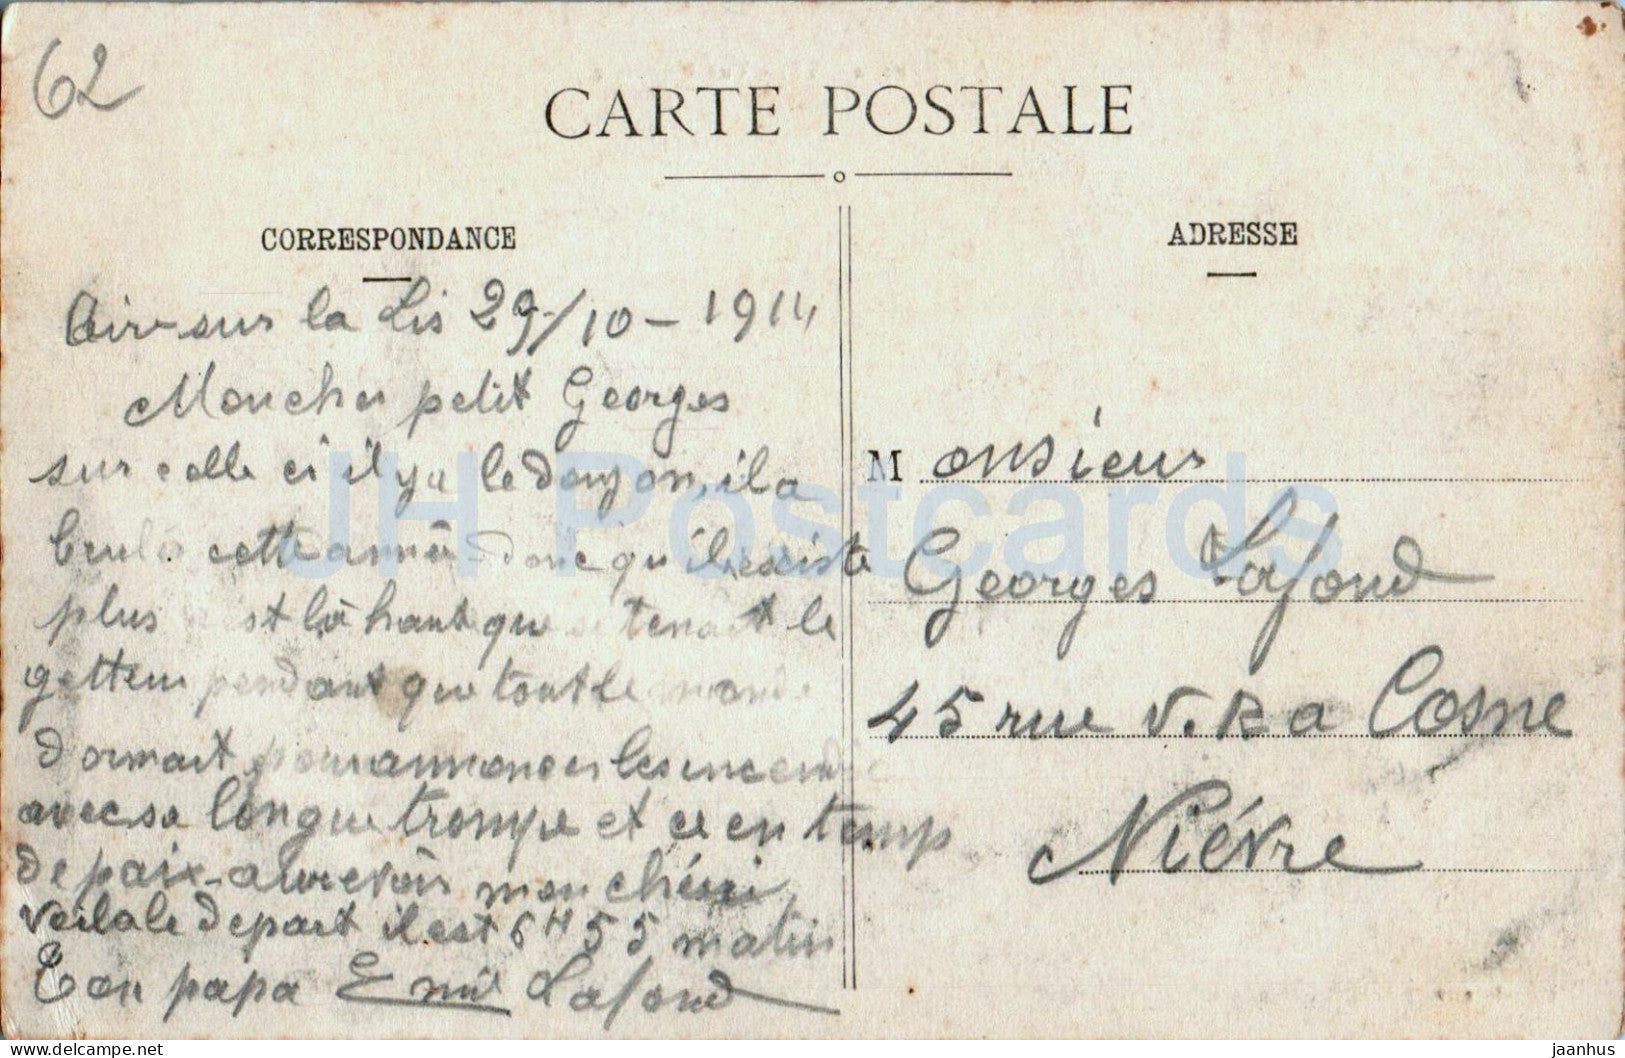 62
CARTE POSTALE
CORRESPONDANCE
ADRESSE
Aire sur la Lis 29/10-1914
Moncher petit Georges
sur celle ci il y a le donjon, il a
brulé cette année donc qu'il existe
plus est là haut que se tenait le
getteur pendant que tout le monde
dormait pour annoncer les incendie
avec sa longue trompe et ce en temp
de paix - aurevoir mon chéri
voila le depart il est 6H55 matin
Ton papa Emil Lafond
Monsieur
Georges Lafond
45 rue V.R a Cosne
Nièvre
JH Postcards
delcampe.net
jaanhus